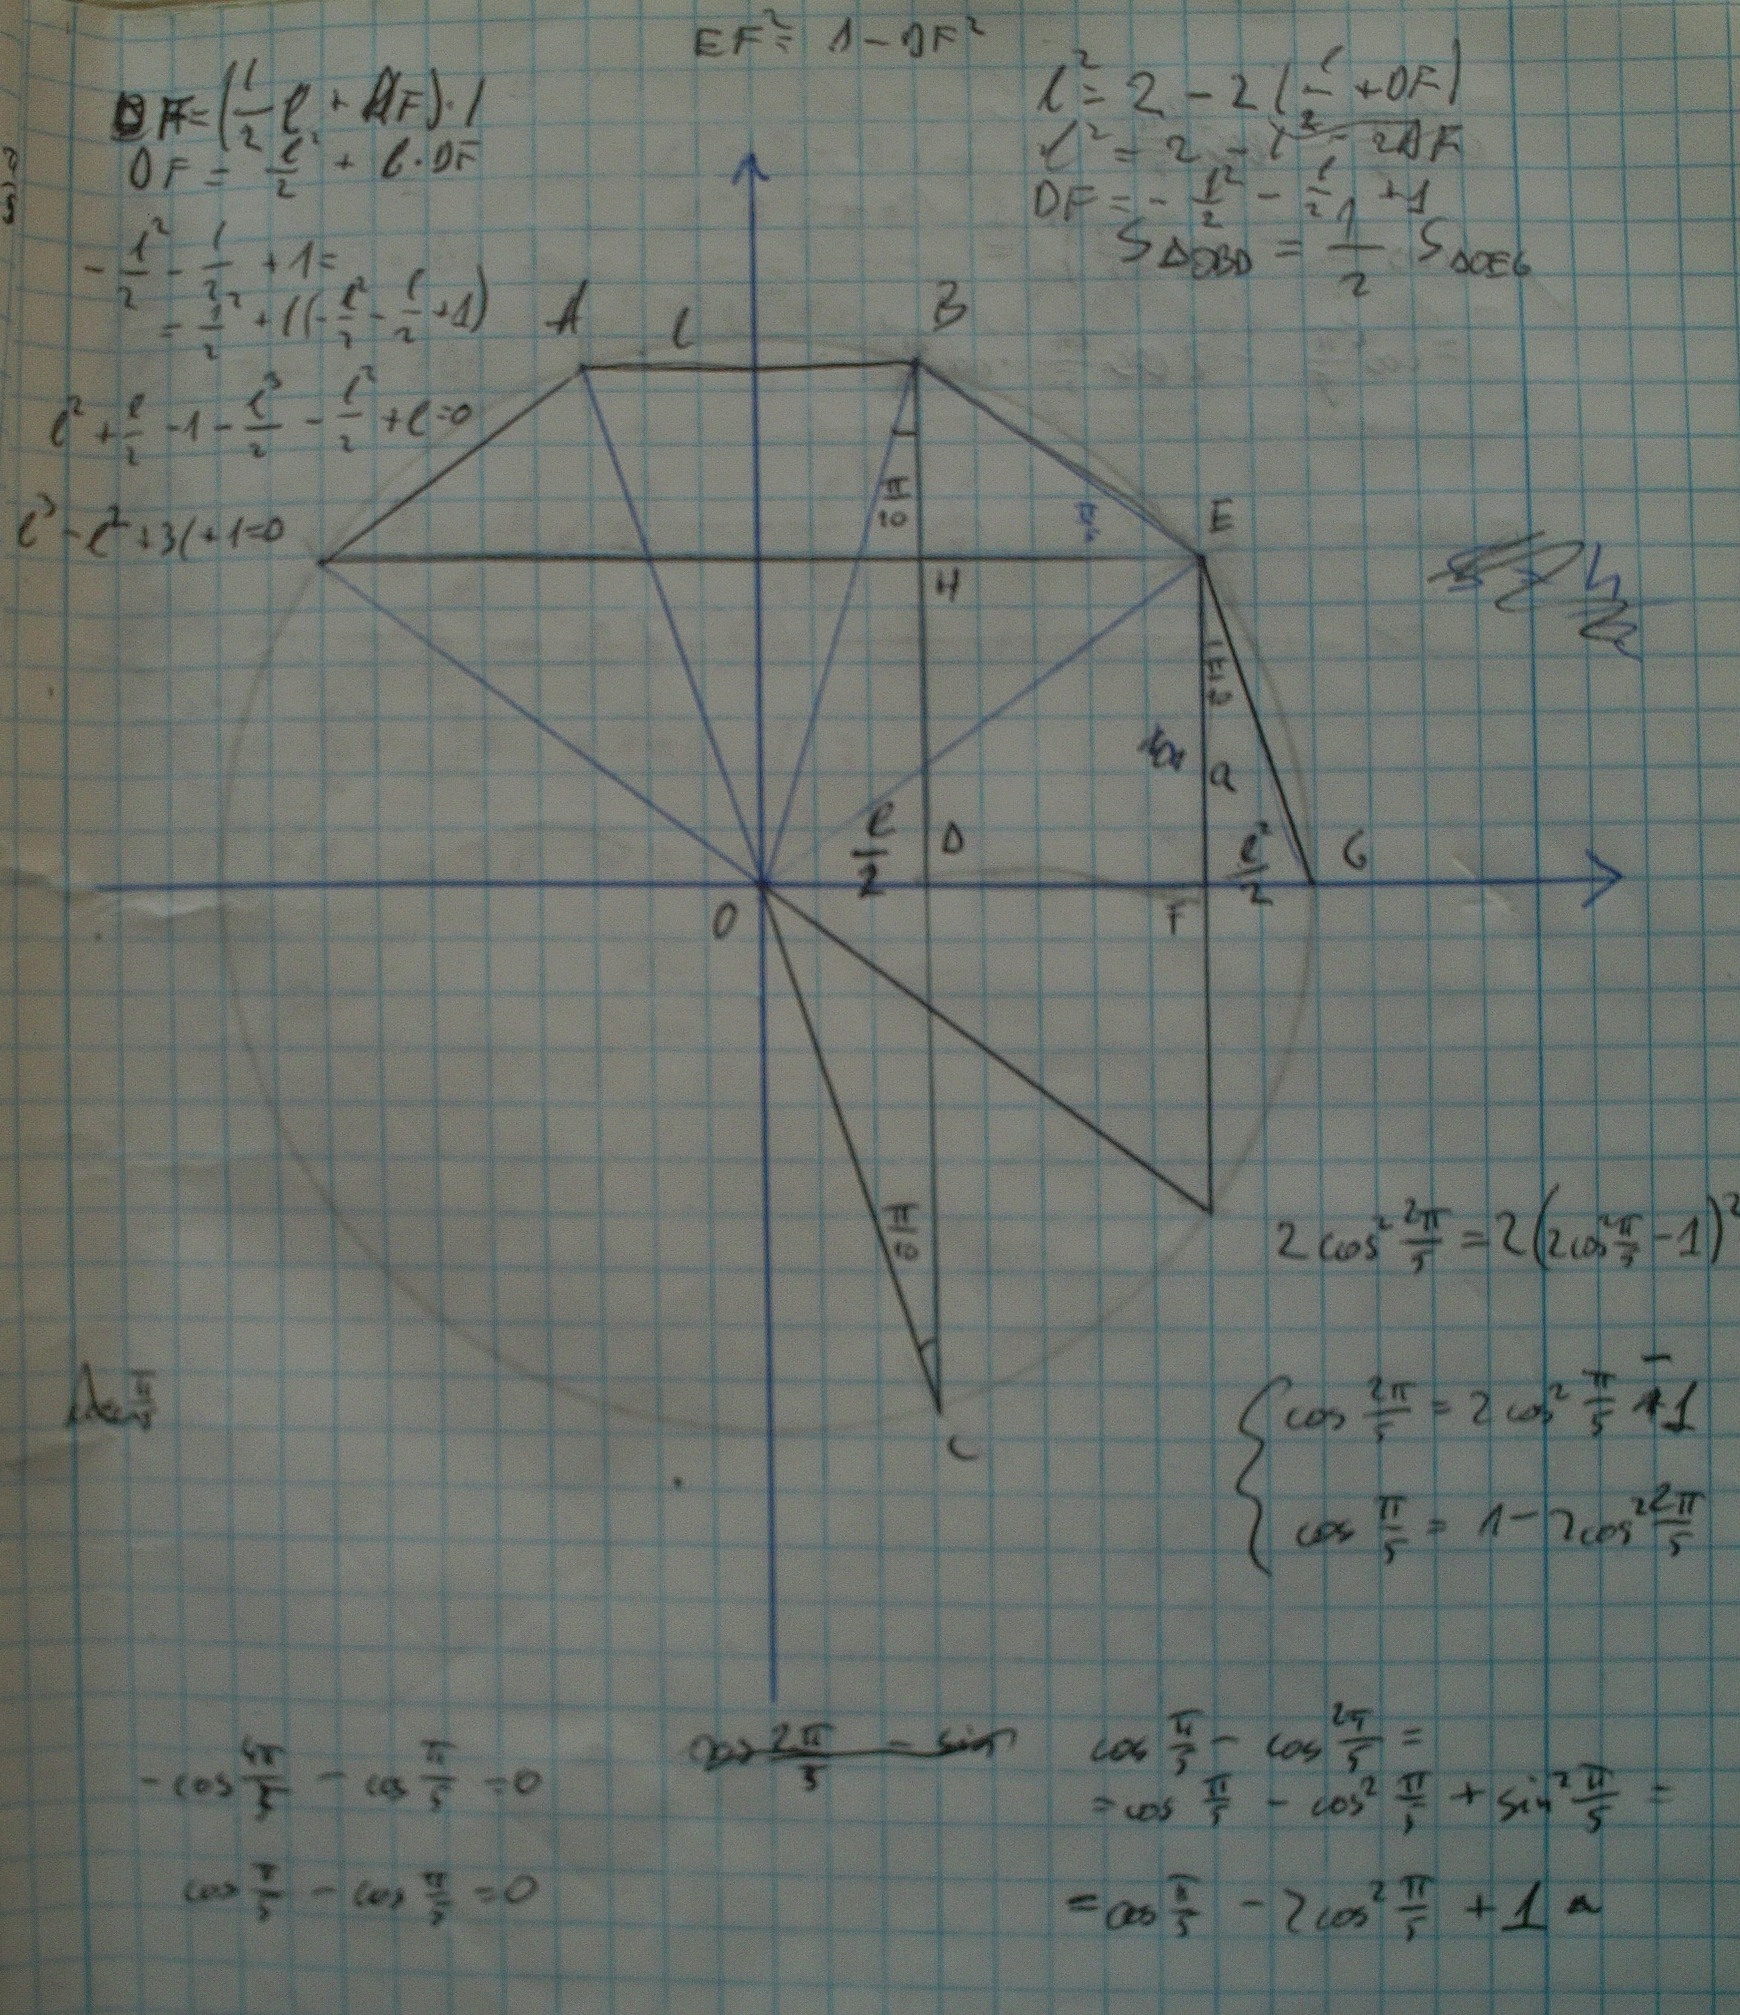 EF² = 1 - DF²
DF = (1/2 l + DF) · l
DF = l²/2 + l · DF
- l²/2 - l/2 + 1 =
= l²/2 + l(- l²/2 - l/2 + 1)
l² + l/2 - 1 - l³/2 - l²/2 + l = 0
l³ - l² + 3l + 1 = 0
l² = 2 - 2(l/2 + DF)
l² = 2 - l - 2DF
DF = - l²/2 - l/2 + 1
S△OBD = 1/2 S△OEG
A l B
π/10
E
H
π/10
a
l/2 D l²/2 G
O F
π/10
C
2cos² 2π/5 = 2(2cos² π/5 - 1)²
cos 2π/5 = 2cos² π/5 - 1
cos π/5 = 1 - 2cos² 2π/5
- cos 4π/5 - cos π/5 = 0
cos π/5 - cos π/5 = 0
cos 2π/5 - sin
cos π/5 - cos 2π/5 =
= cos π/5 - cos² π/5 + sin² π/5 =
= cos π/5 - 2cos² π/5 + 1